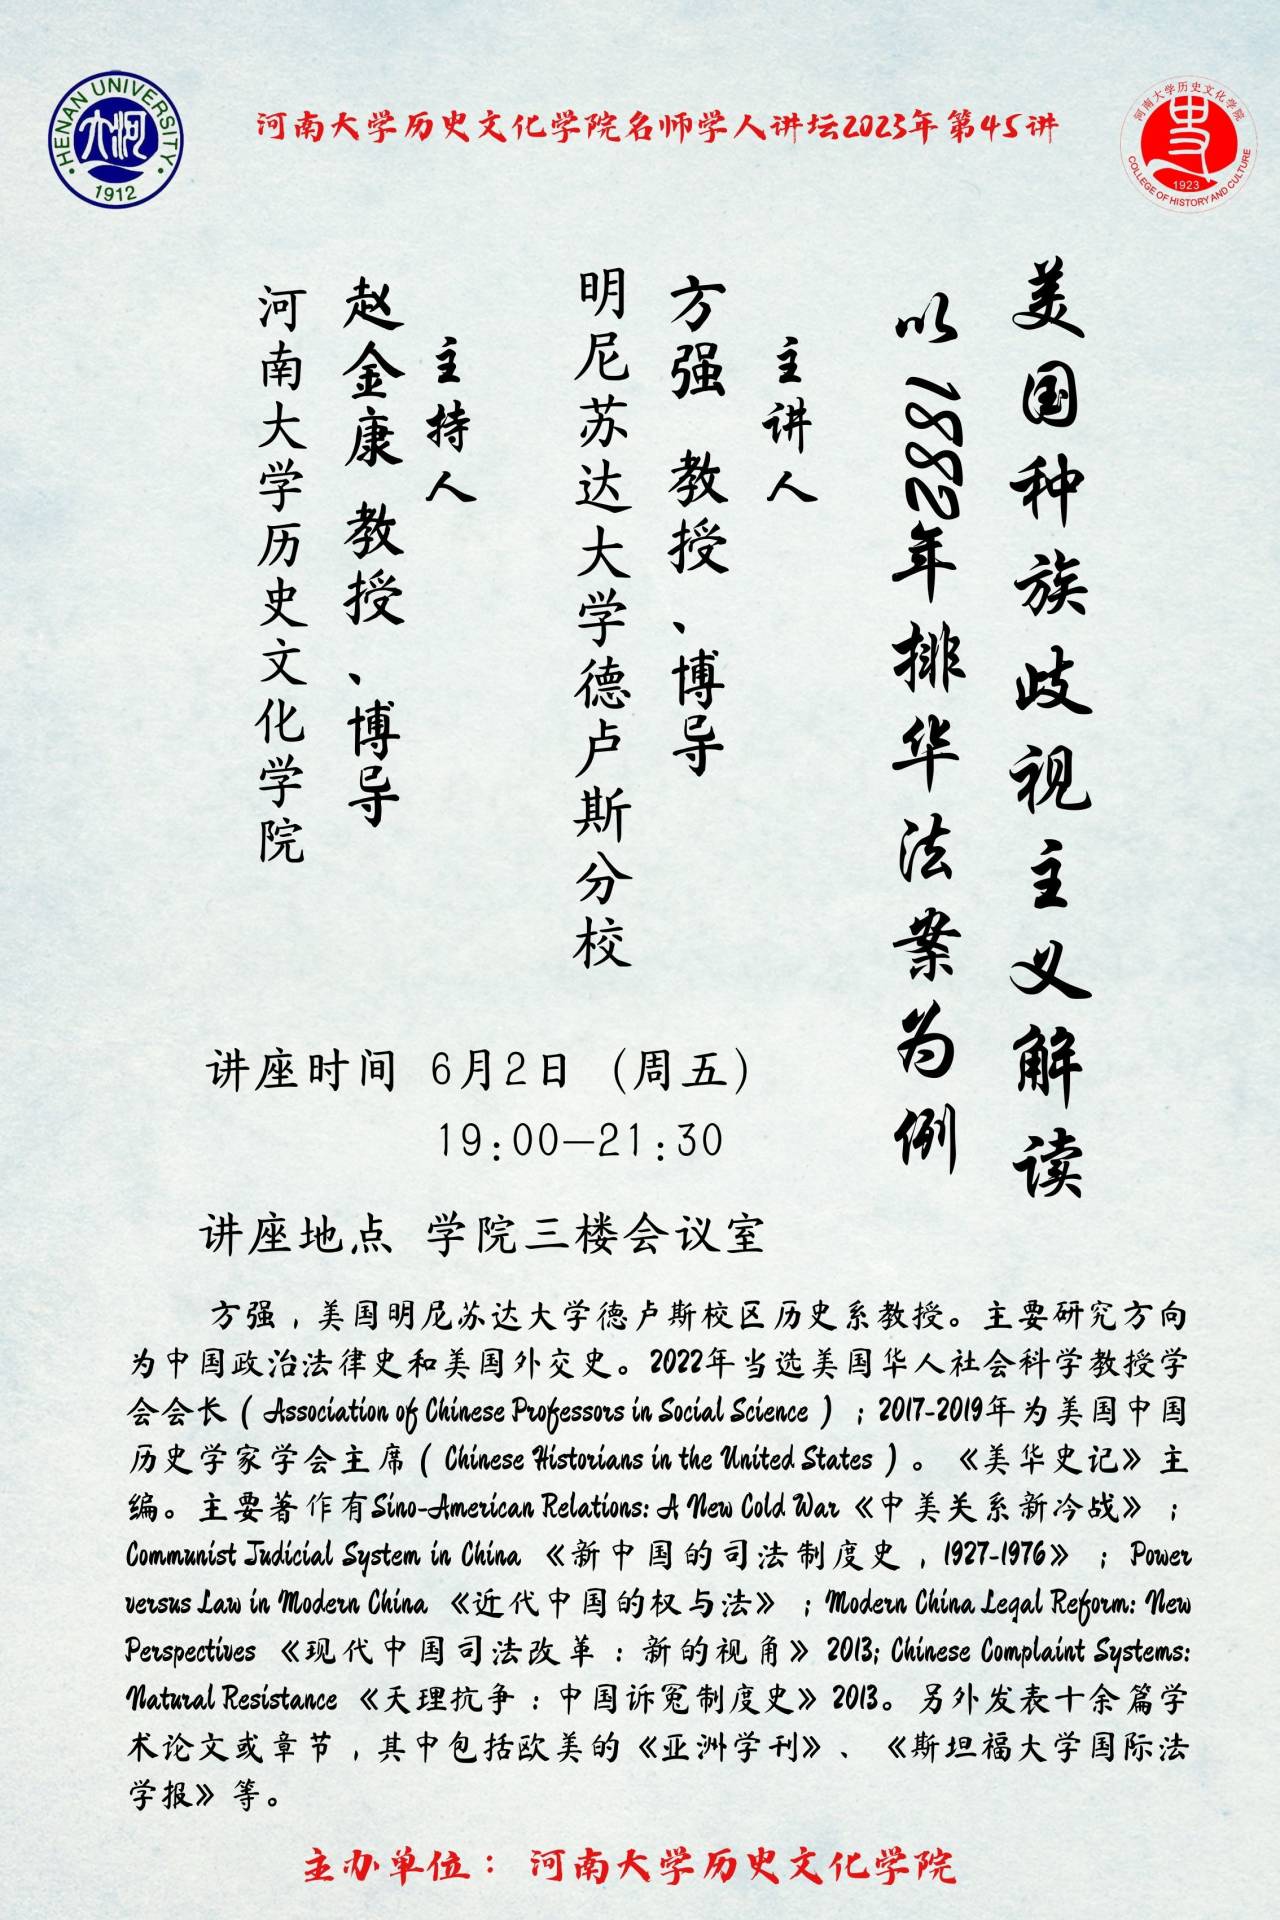 HENAN UNIVERSITY
大河
1912
河南大学历史文化学院名师学人讲坛2023年第45讲
河南大学历史文化学院
史
1923
COLLEGE OF HISTORY AND CULTURE
美国种族歧视主义解读
以1882年排华法案为例
主讲人
方强 教授、博导
明尼苏达大学德卢斯分校
主持人
赵金康 教授、博导
河南大学历史文化学院
讲座时间 6月2日（周五）
19:00—21:30
讲座地点 学院三楼会议室
方强，美国明尼苏达大学德卢斯校区历史系教授。主要研究方向
为中国政治法律史和美国外交史。2022年当选美国华人社会科学教授学
会会长（Association of Chinese Professors in Social Science）；2017-2019年为美国中国
历史学家学会主席（Chinese Historians in the United States）。《美华史记》主
编。主要著作有Sino-American Relations: A New Cold War《中美关系新冷战》；
Communist Judicial System in China《新中国的司法制度史，1927-1976》；Power
versus Law in Modern China《近代中国的权与法》；Modern China Legal Reform: New
Perspectives《现代中国司法改革：新的视角》2013; Chinese Complaint Systems:
Natural Resistance《天理抗争：中国诉冤制度史》2013。另外发表十余篇学
术论文或章节，其中包括欧美的《亚洲学刊》、《斯坦福大学国际法
学报》等。
主办单位：河南大学历史文化学院